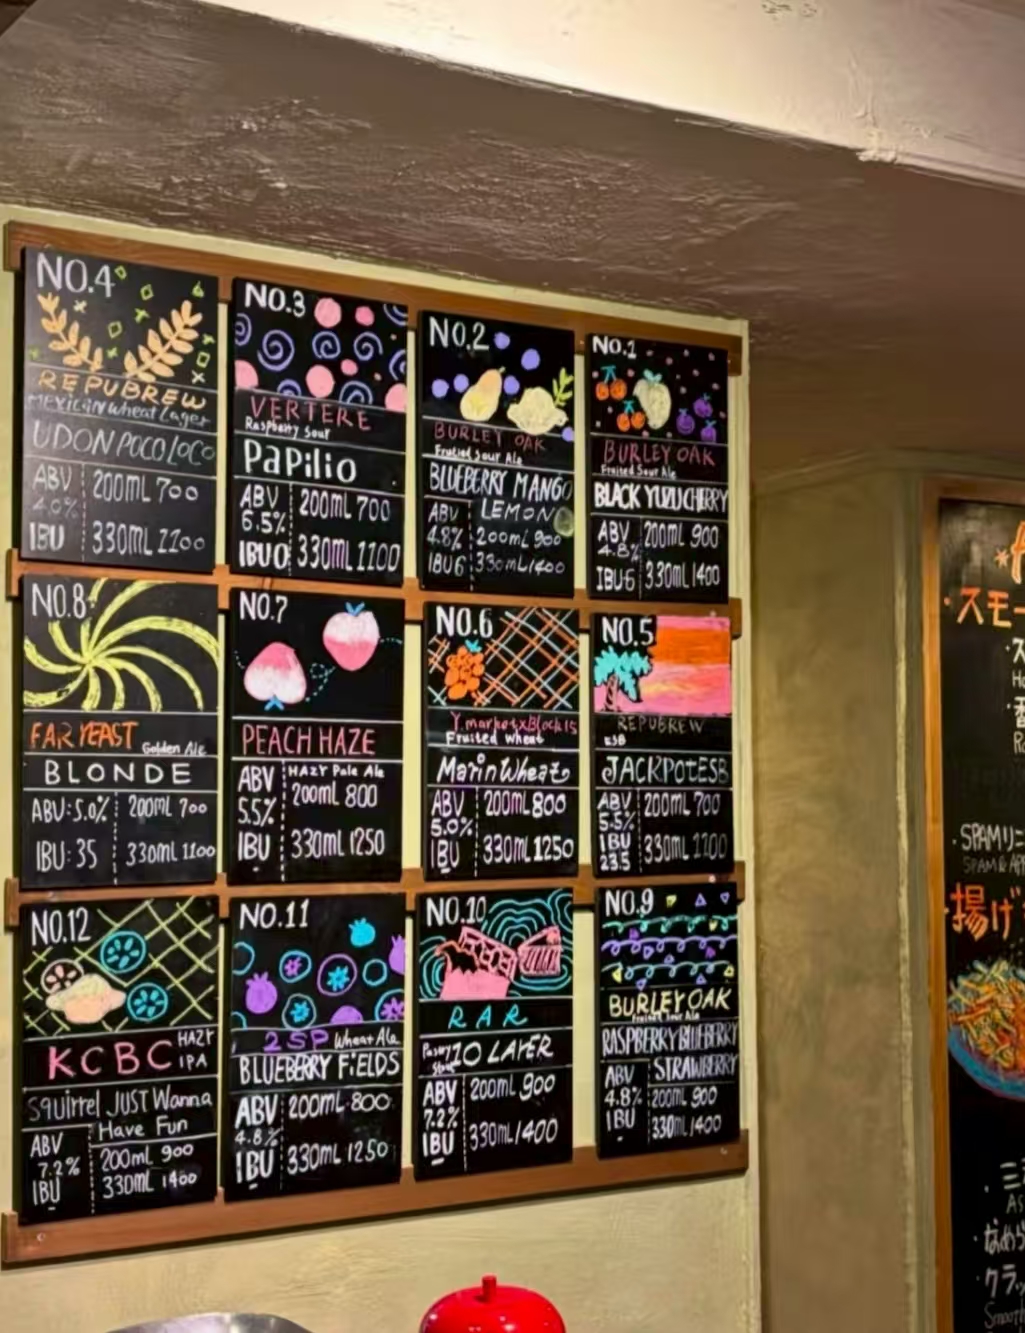 NO.4
REPUBREW
Mexican Wheat Lager
UDON POCO LOCO
ABV
4.0%
IBU
200mL 700
330mL 1100
NO.3
VERTERE
Raspberry Sour
PaPilio
ABV
6.5%
IBU 0
200mL 700
330mL 1100
NO.2
BURLEY OAK
Fruited Sour Ale
BLUEBERRY MANGO
LEMON
ABV
4.8%
IBU6
200mL 900
330mL 1400
NO.1
BURLEY OAK
Fruited Sour Ale
BLACK YUZU CHERRY
ABV
4.8%
IBU6
200mL 900
330mL 1400
NO.8
FAR YEAST
Golden Ale
BLONDE
ABV:5.0%
IBU:35
200mL 700
330mL 1100
NO.7
PEACH HAZE
HAZY Pale Ale
ABV
5.5%
IBU
-
200mL 800
330mL 1250
NO.6
Y.marketxBlock15
Fruited Wheat
Marin Wheat
ABV
5.0%
IBU
-
200mL 800
330mL 1250
NO.5
REPUBREW
ESB
JACKPOTESB
ABV
5.5%
IBU
23.5
200mL 700
330mL 1100
NO.12
KCBC
HAZY
IPA
Squirrel JUST Wanna
Have Fun
ABV
7.2%
IBU
-
200mL 900
330mL 1400
NO.11
2SP
Wheat Ale
BLUEBERRY FiELDS
ABV
4.8%
IBU
-
200mL 800
330mL 1250
NO.10
RAR
Pastry
Stout
10 LAYER
ABV
7.2%
IBU
-
200mL 900
330mL 1400
NO.9
BURLEY OAK
Fruited Sour Ale
RASPBERRY BLUEBERRY
STRAWBERRY
ABV
4.8%
IBU
-
200mL 900
330mL 1400
スモー
SPAMリ
SPAM & AP
揚げ
なめら
クラッ
Smooth